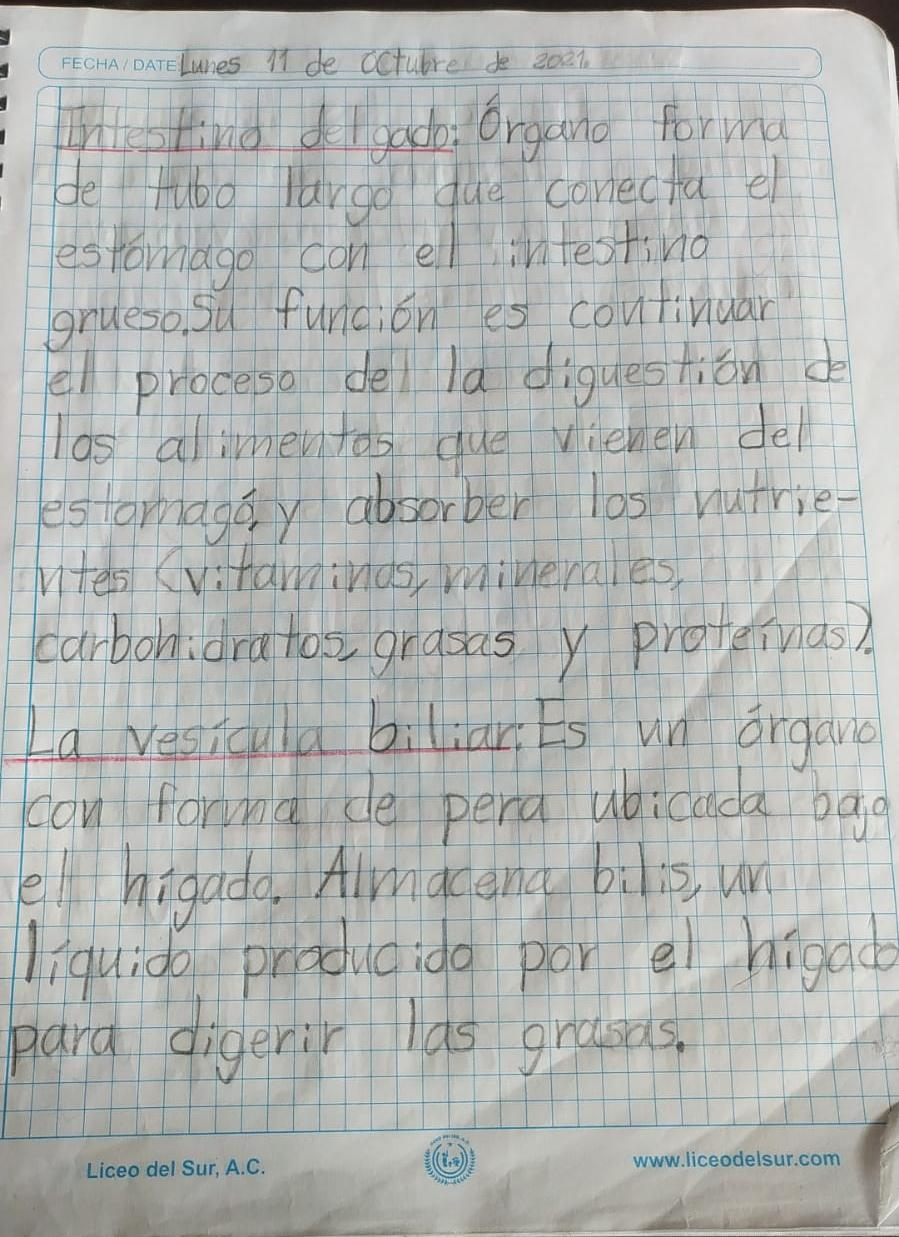 FECHA / DATE: Lunes 11 de octubre de 2021.
Intestino delgado: Órgano forma
de tubo largo que conecta el
estómago con el intestino
grueso. Su función es continuar
el proceso del la diguestión de
los alimentos que vienen del
estomagó, y absorber los nutrie-
ntes (vitaminas, minerales,
carbohidratos, grasas y proteínas).
La vesícula biliar: Es un órgano
con forma de pera ubicada bajo
el hígado. Almacena bilis, un
líquido producido por el hígado
para digerir las grasas.
Liceo del Sur, A.C.
www.liceodelsur.com